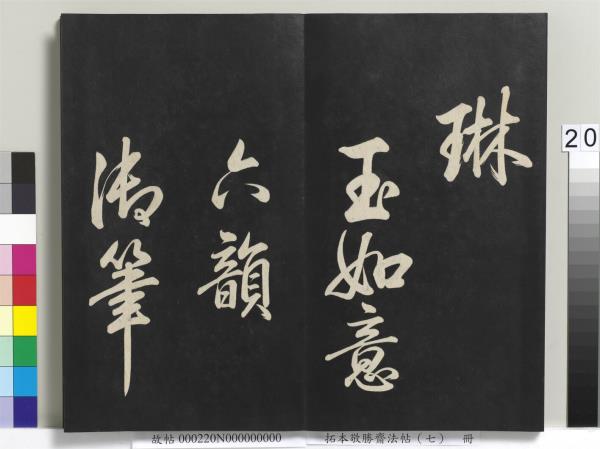 琳
玉如意
六韻
御筆
20
故帖 000220N000000000
拓本敬勝齋法帖（七） 冊